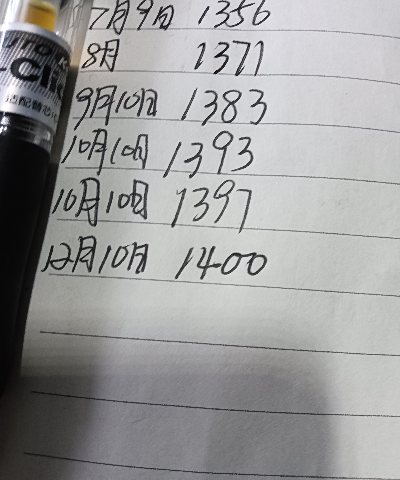 7月9日 1356
8月 1371
9月10日 1383
10月10日 1393
10月10日 1397
12月10日 1400
适配替芯